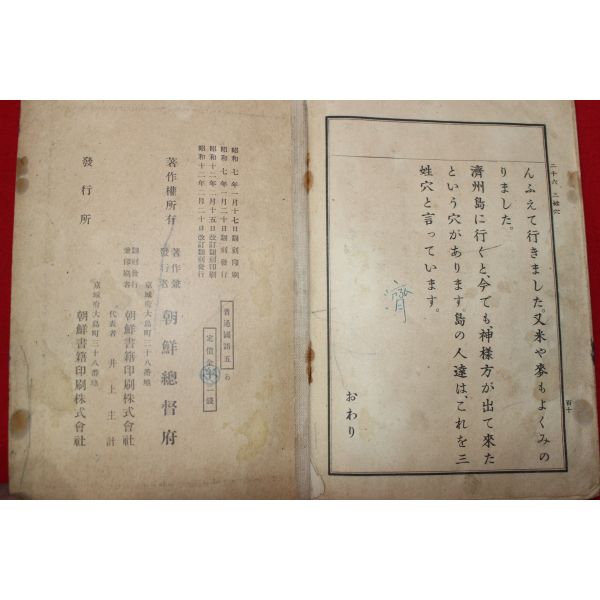 二十六 三姓穴
百十
んふえて行きました。又米や麥もよくみの
りました。
濟州島に行くと、今でも、神様方が出て來た
という穴があります。島の人達は、これを三
姓穴と言っています。
おわり
濟
昭和七年一月十七日翻刻印刷
昭和七年一月二十日翻刻發行
昭和十二年二月十五日改訂翻刻印刷
昭和十二年二月二十日改訂翻刻發行
普通國語五ら
定價金
錢
著作權所有
著作兼發行者
朝鮮總督府
京城府大島町三十八番地
翻刻發行兼印刷者
朝鮮書籍印刷株式會社
代表者 井上主計
京城府大島町三十八番地
發行所
朝鮮書籍印刷株式會社